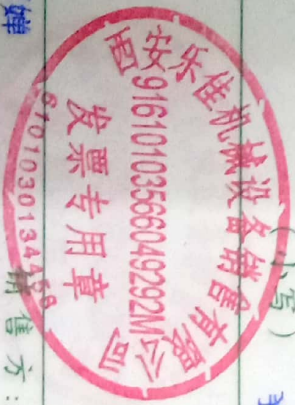 西安乐佳机械设备销售有限公司
9161010356604929​2M
发票专用章
6101030134456
(小写)
销售方: